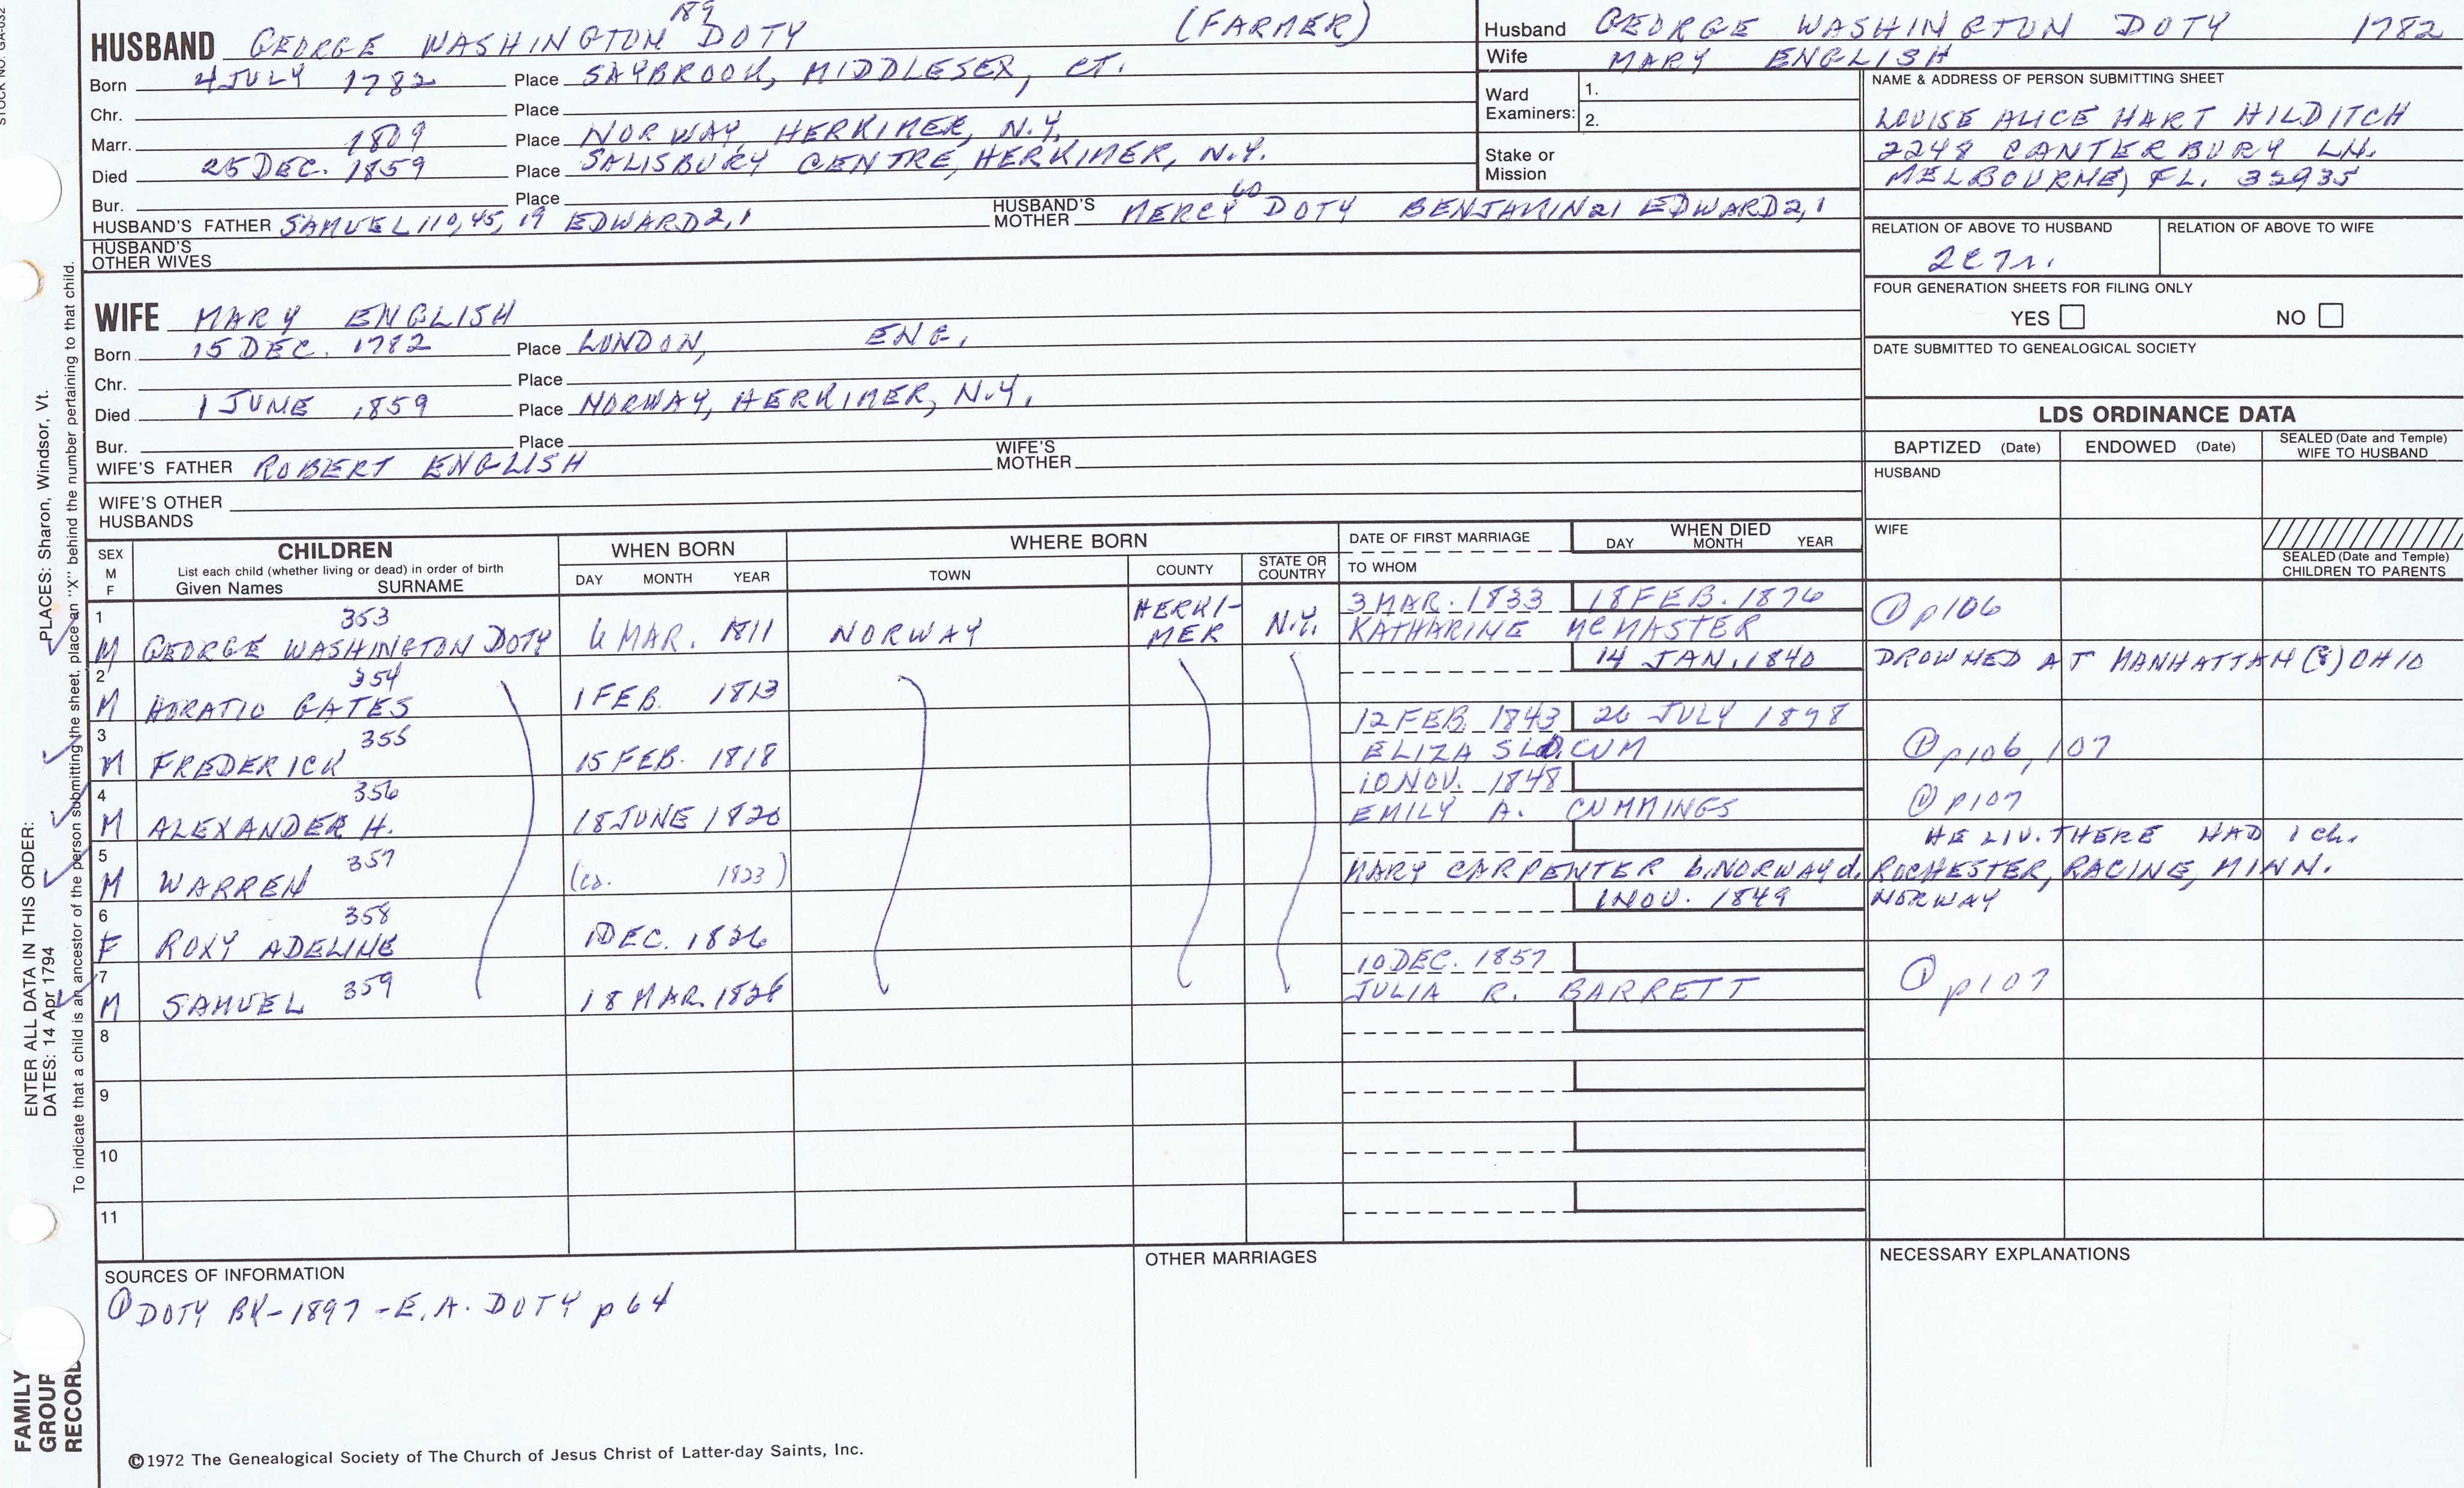 STOCK NO. GA-032
189
HUSBAND GEORGE WASHINGTON DOTY (FARMER)
Born 4 JULY 1782 Place SAYBROOK, MIDDLESEX, CT.
Chr. Place
Marr. 1809 Place NORWAY, HERKIMER, N.Y.
Died 25 DEC. 1859 Place SALISBURY CENTRE, HERKIMER, N.Y.
Bur. Place
60
HUSBAND'S FATHER SAMUEL 110, 45, 19 EDWARD 2, 1 HUSBAND'S MOTHER MERCY DOTY BENJAMIN 21 EDWARD 2, 1
HUSBAND'S OTHER WIVES
Husband GEORGE WASHINGTON DOTY 1782
Wife MARY ENGLISH
Ward Examiners: 1.
2.
Stake or Mission
NAME & ADDRESS OF PERSON SUBMITTING SHEET
LOUISE ALICE HART HILDITCH
2248 CANTERBURY LN.
MELBOURNE, FL. 32935
RELATION OF ABOVE TO HUSBAND RELATION OF ABOVE TO WIFE
2C7r.
FOUR GENERATION SHEETS FOR FILING ONLY
YES NO
DATE SUBMITTED TO GENEALOGICAL SOCIETY
WIFE MARY ENGLISH
Born 15 DEC. 1782 Place LONDON, ENG.
Chr. Place
Died 1 JUNE 1859 Place NORWAY, HERKIMER, N.Y.
Bur. Place
WIFE'S FATHER ROBERT ENGLISH WIFE'S MOTHER
WIFE'S OTHER HUSBANDS
LDS ORDINANCE DATA
BAPTIZED (Date) ENDOWED (Date) SEALED (Date and Temple) WIFE TO HUSBAND
HUSBAND
WIFE
SEALED (Date and Temple) CHILDREN TO PARENTS
SEX M F
CHILDREN
List each child (whether living or dead) in order of birth
Given Names SURNAME
WHEN BORN
DAY MONTH YEAR
WHERE BORN
TOWN COUNTY STATE OR COUNTRY
DATE OF FIRST MARRIAGE
TO WHOM
WHEN DIED
DAY MONTH YEAR
1 353 3 MAR. 1833 18 FEB. 1876 ① p106
M GEORGE WASHINGTON DOTY 6 MAR. 1811 NORWAY HERKI-MER N.Y. KATHARINE MCMASTER
2 354 14 JAN. 1840 DROWNED AT MANHATTAN (?) OHIO
M HORATIO GATES 1 FEB. 1813
3 355 12 FEB. 1843 26 JULY 1898
M FREDERICK 15 FEB. 1818 ELIZA SLOCUM ① p106, 107
4 356 10 NOV. 1848
M ALEXANDER H. 18 JUNE 1820 EMILY A. CUMMINGS ① p107
HE LIV. THERE HAD 1 ch.
5 357
M WARREN (ca. 1823) MARY CARPENTER b. NORWAY d. ROCHESTER, RACINE, MINN.
6 358 1 NOV. 1849 NORWAY
F ROXY ADELINE 1 DEC. 1826
7 359 10 DEC. 1857
M SAMUEL 18 MAR. 1828 JULIA R. BARRETT ① p107
8
9
10
11
SOURCES OF INFORMATION
① DOTY BK-1897 - E. A. DOTY p 64
OTHER MARRIAGES
NECESSARY EXPLANATIONS
©1972 The Genealogical Society of The Church of Jesus Christ of Latter-day Saints, Inc.
FAMILY GROUP RECORD
ENTER ALL DATA IN THIS ORDER:
DATES: 14 Apr 1794 PLACES: Sharon, Windsor, Vt.
To indicate that a child is an ancestor of the person submitting the sheet, place an "X" behind the number pertaining to that child.